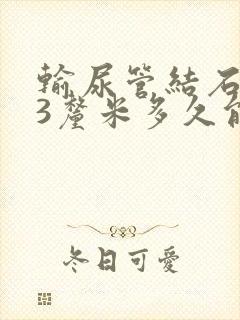 輸尿管結石
3釐米多久能
冬日可愛